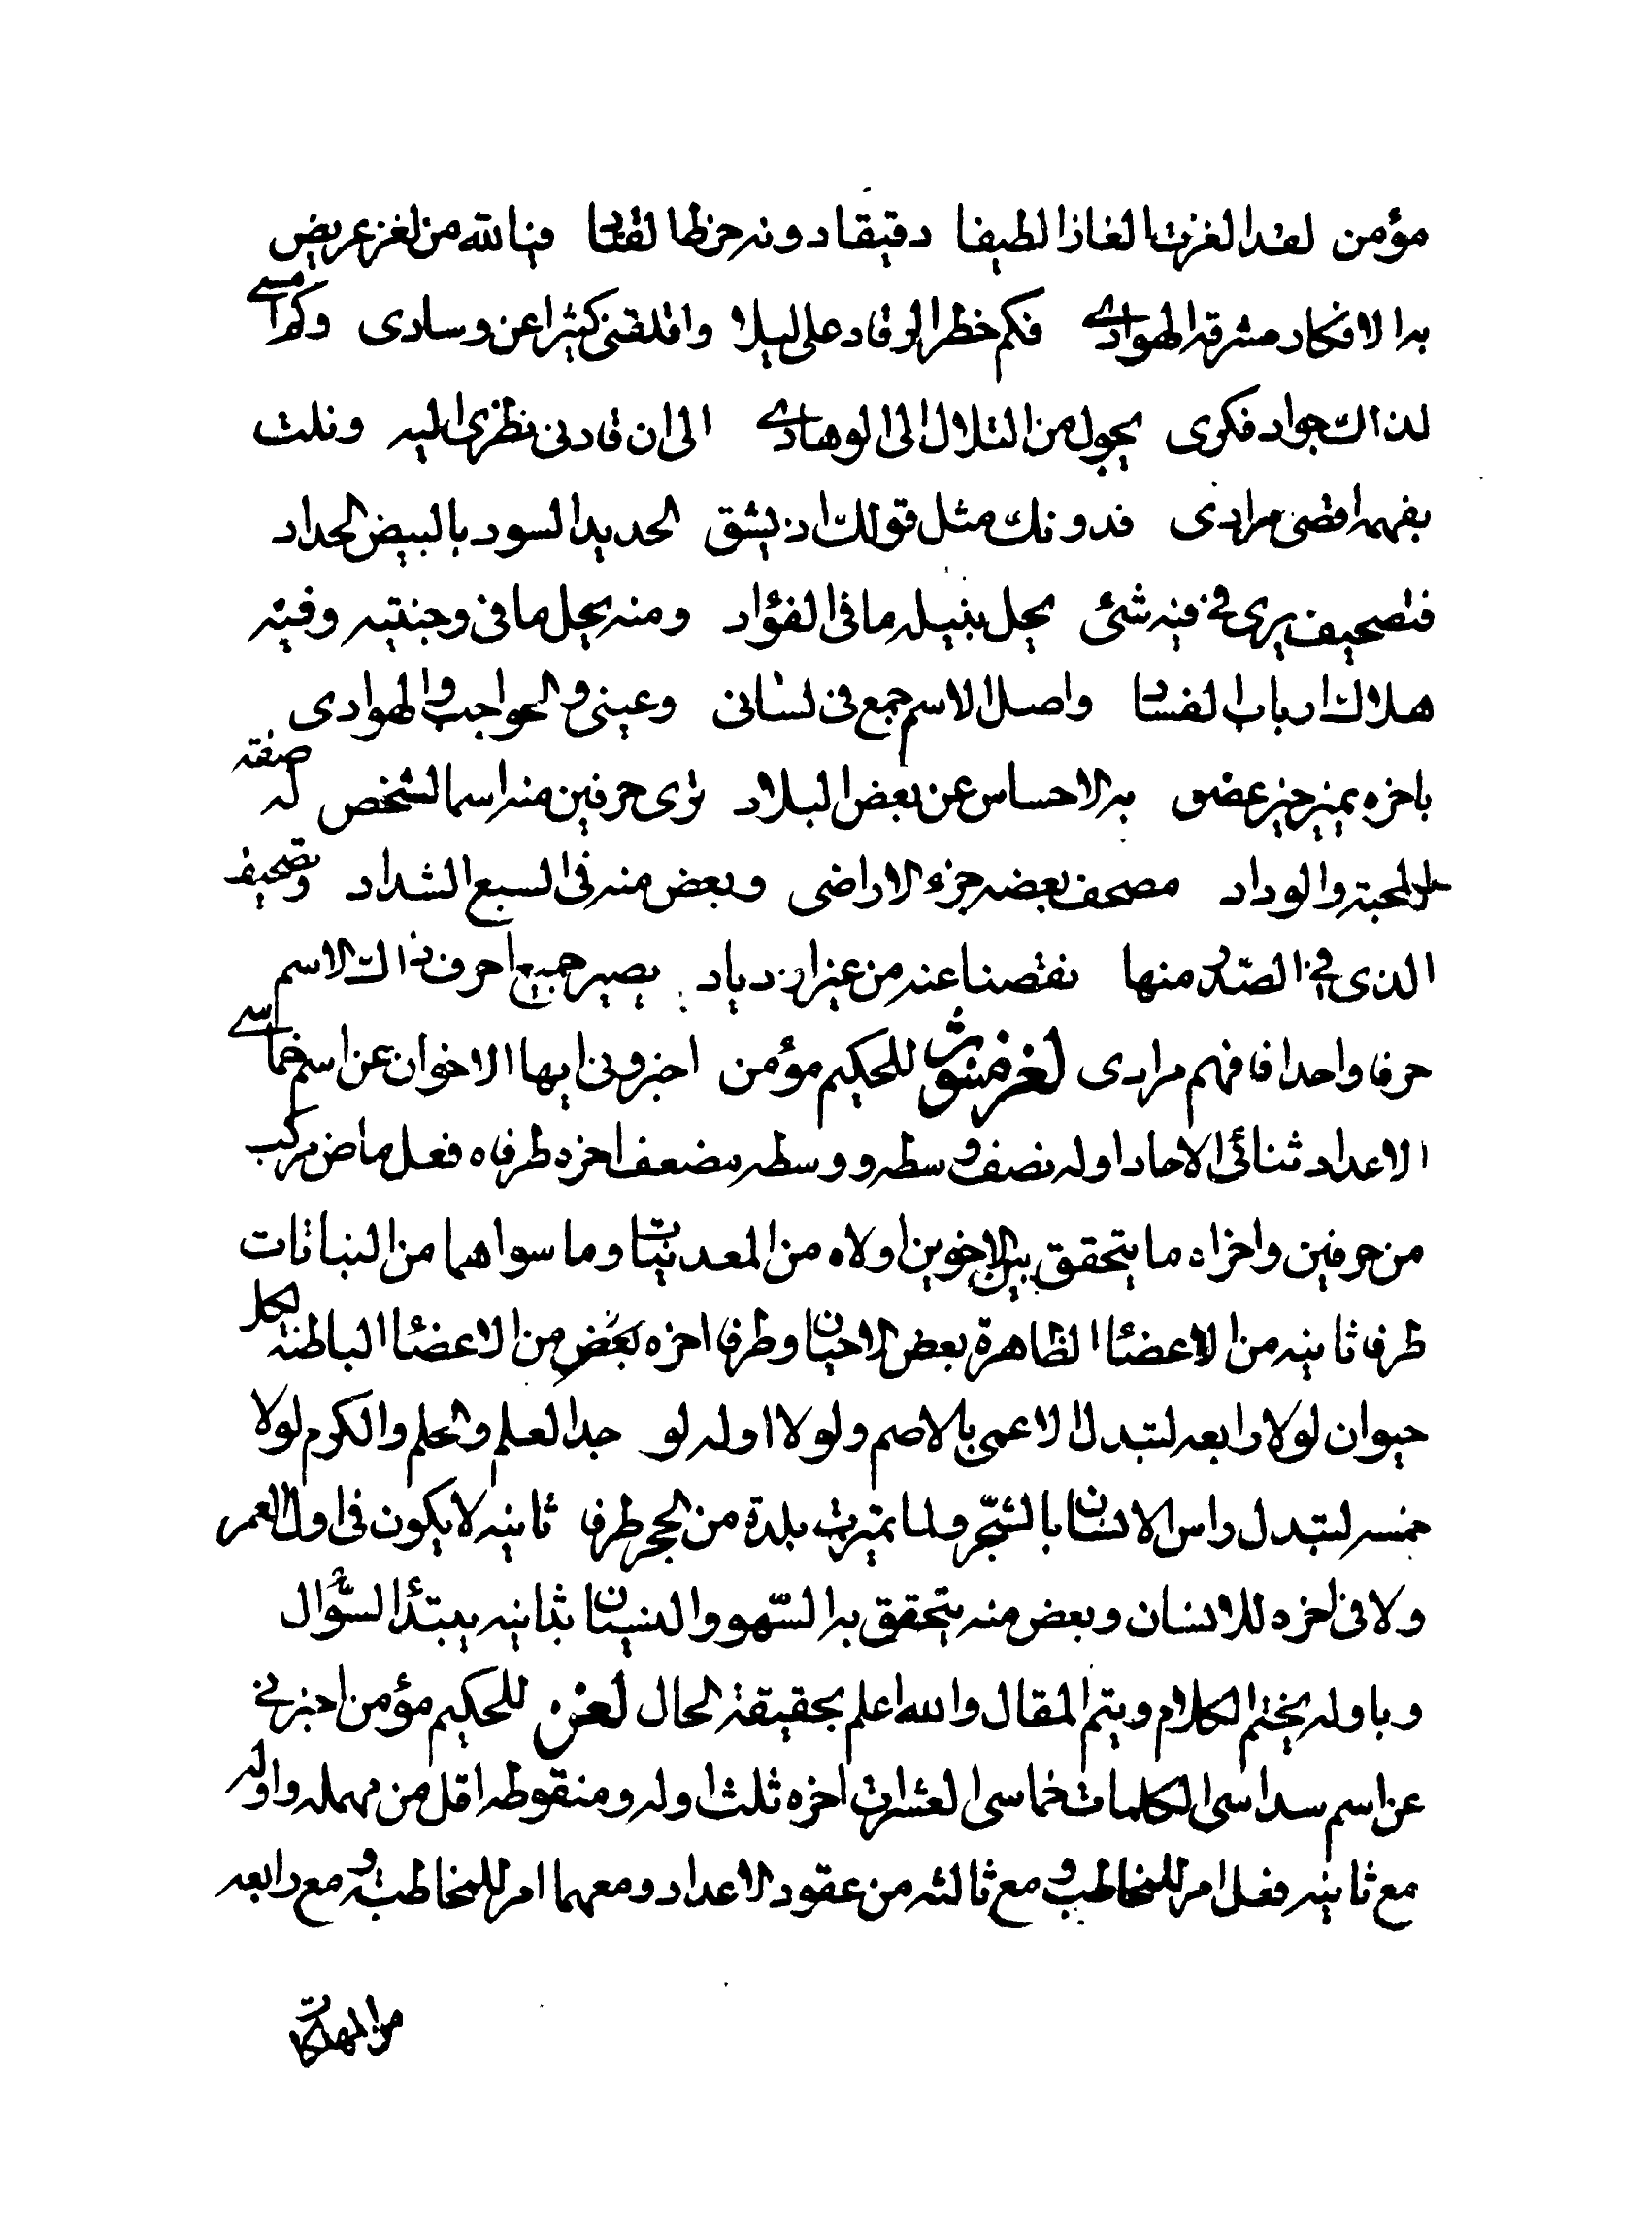 مؤمن لقد الغزت الغازا لطيفا دقيقا دونه خرط القتاد فيا لله من لغز عريض
به الافكار مشرقه الهوادى فكم خطر الوقاد على ليلا واقلقنى كثيرا عن وسادى وكم امسى
لذاك جواد فكرى يجول من التلال الى الوهاد الى ان قادنى نظرى اليه ونلت
بفهمه اقصى مرادى فدونك مثل قولك اذ يشق الحديد السود بالبيض الحداد
فتصحيف يرى فى فيه شئ يحل بنيله ما فى الفؤاد ومنه يحل ما فى وجنتيه وفيه
هلاك ارباب الفساد واصل الاسم جمع فى لسانى وعينى والحواجب والهوادى
باخره يميز جزء عضو به الاحساس عن بعض البلاد ترى حرفين منه اسما لشخص له صفة
المحبة والوداد مصحف بعضه جزء الاراضى وبعض منه فى السبع الشداد وتصحيف
الذى فى الصدر منها نقصنا عنه من غير ازدياد يصير جميع احرف ذاك الاسم
حرفا واحدا فافهم مرادى لغز منثور للحكيم مؤمن اخبرونى ايها الاخوان عن اسم خماسى
الاعداد ثنائى الاحاد اوله نصف وسطه ووسطه مضعف اخره طرفاه فعل ماض مركب
من حرفين واخراه ما يتحقق بين الاخوين اولاه من المعدنيات وما سواهما من النباتات
طرفا ثانيه من الاعضاء الظاهرة بعض الاحيان وطرفا اخره بعض من الاعضاء الباطنة لكل
حيوان لولا رابعه لتبدل الاعمى بالاصم ولولا اوله لو جد العلم والحلم والكرم لولا
خمسه لتبدل راس الانسان بالشجر ولما تميزت بلدة من الحجر طرفا ثانيه لا يكون فى اول العمر
ولا فى اخره للانسان وبعض منه يتحقق به السهو والنسيان بثانيه يبتدأ السؤال
وباوله يختم الكلام ويتم المقال والله اعلم بحقيقة الحال لغز للحكيم مؤمن اخبرنى
عن اسم سداسى الكلمات خماسى العشرات اخره ثلث اوله ومنقوطه اقل من مهمله واوله
مع ثانيه فعل امر للمخاطب ومع ثالثه من عقود الاعداد ومعهما امر للمخاطبة ومع رابعه